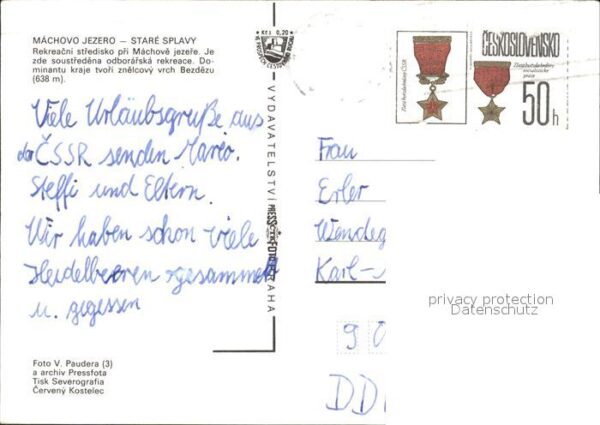 MÁCHOVO JEZERO — STARÉ SPLAVY
Rekreační středisko při Máchově jezeře. Je
zde soustředěna odborářská rekreace. Do-
minantu kraje tvoří znělcový vrch Bezdězu
(638 m).
Viele Urlaubsgrüße aus
der ČSSR senden Mario.
Steffi und Eltern.
Wir haben schon viele
Heidelbeeren gesammelt
u. gegessen
Foto V. Paudera (3)
a archiv Pressfota
Tisk Severografia
Červený Kostelec
Kčs 0,20
VYDAVATELSTVÍ PRESSFOTO PRAHA
ČESKOSLOVENSKO
50h
Frau
Erler
Wendeg
Karl-
90
DD
privacy protection
Datenschutz